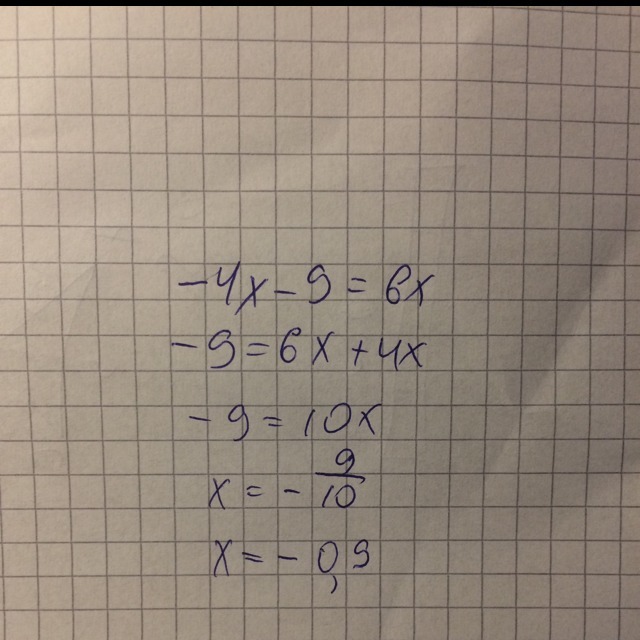 -4x-9=6x
-9=6x+4x
-9=10x
x=-9/10
x=-0,9